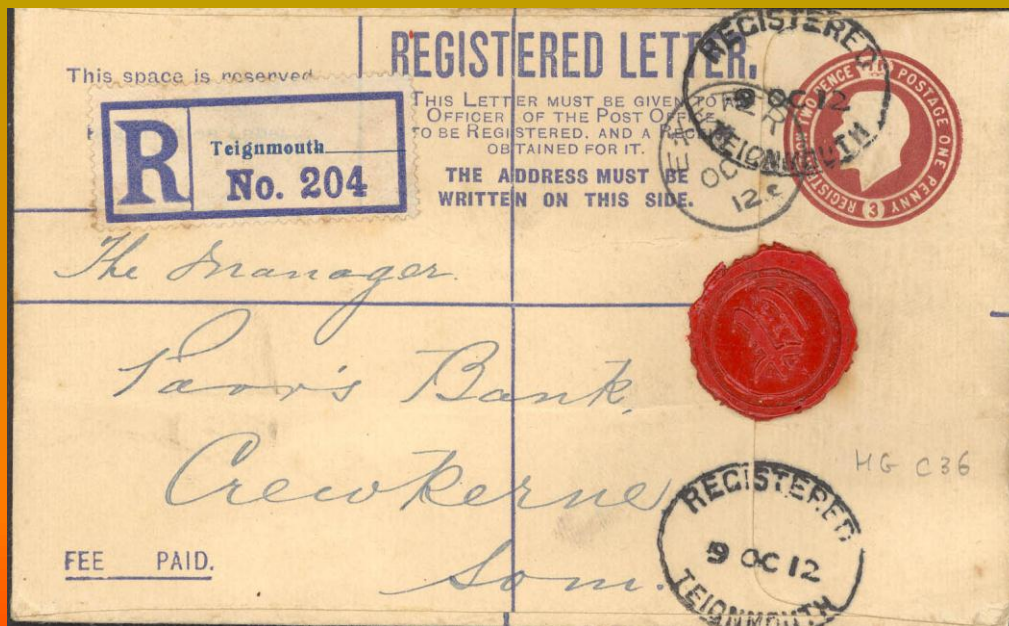 REGISTERED LETTER.
This space is reserved
THIS LETTER MUST BE GIVEN TO
OFFICER OF THE POST OFFICE
TO BE REGISTERED. AND A
OBTAINED FOR IT.
THE ADDRESS MUST BE
WRITTEN ON THIS SIDE.
R
Teignmouth
No. 204
REGISTERED
9 OC 12
TEIGNMOUTH
OC
12
REGISTRATION TWO PENCE POSTAGE ONE PENNY
3
The Manager.
Parr's Bank,
Crewkerne
Som.
HG C36
FEE PAID.
REGISTERED
9 OC 12
TEIGNMOUTH